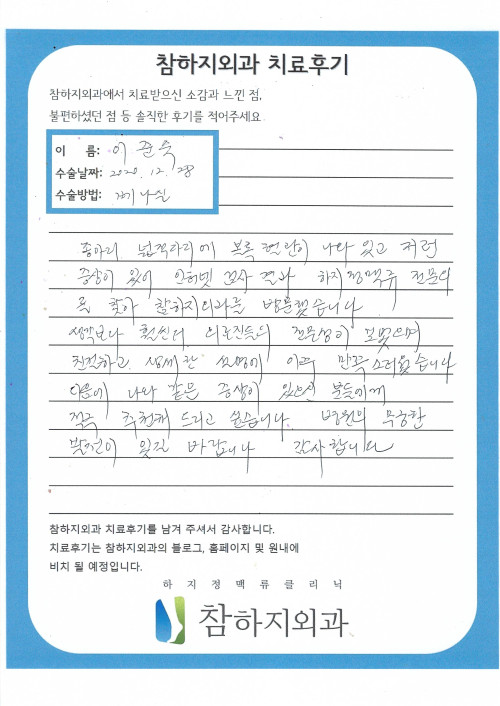 참하지외과 치료후기
참하지외과에서 치료받으신 소감과 느낀 점,
불편하셨던 점 등 솔직한 후기를 적어주세요
이 름: 이준숙
수술날짜: 2020. 12. 28
수술방법: 베나실
종아리 넓적다리에 보록 현란히 나와 있고 저런
증상이 있어 인터넷 검사 결과 하지정맥류 전문의
를 찾아 참하지외과를 방문했습니다
생각보다 훨씬더 의료진들의 전문성이 보였으며
친절하고 상세한 설명에 아주 만족스러웠습니다
다음에 나와 같은 증상이 있으신 분들에게
적극 추천해 드리고 싶습니다. 병원의 무궁한
발전이 있길 바랍니다 감사합니다
참하지외과 치료후기를 남겨 주셔서 감사합니다.
치료후기는 참하지외과의 블로그, 홈페이지 및 원내에
비치 될 예정입니다.
하지정맥류클리닉
참하지외과